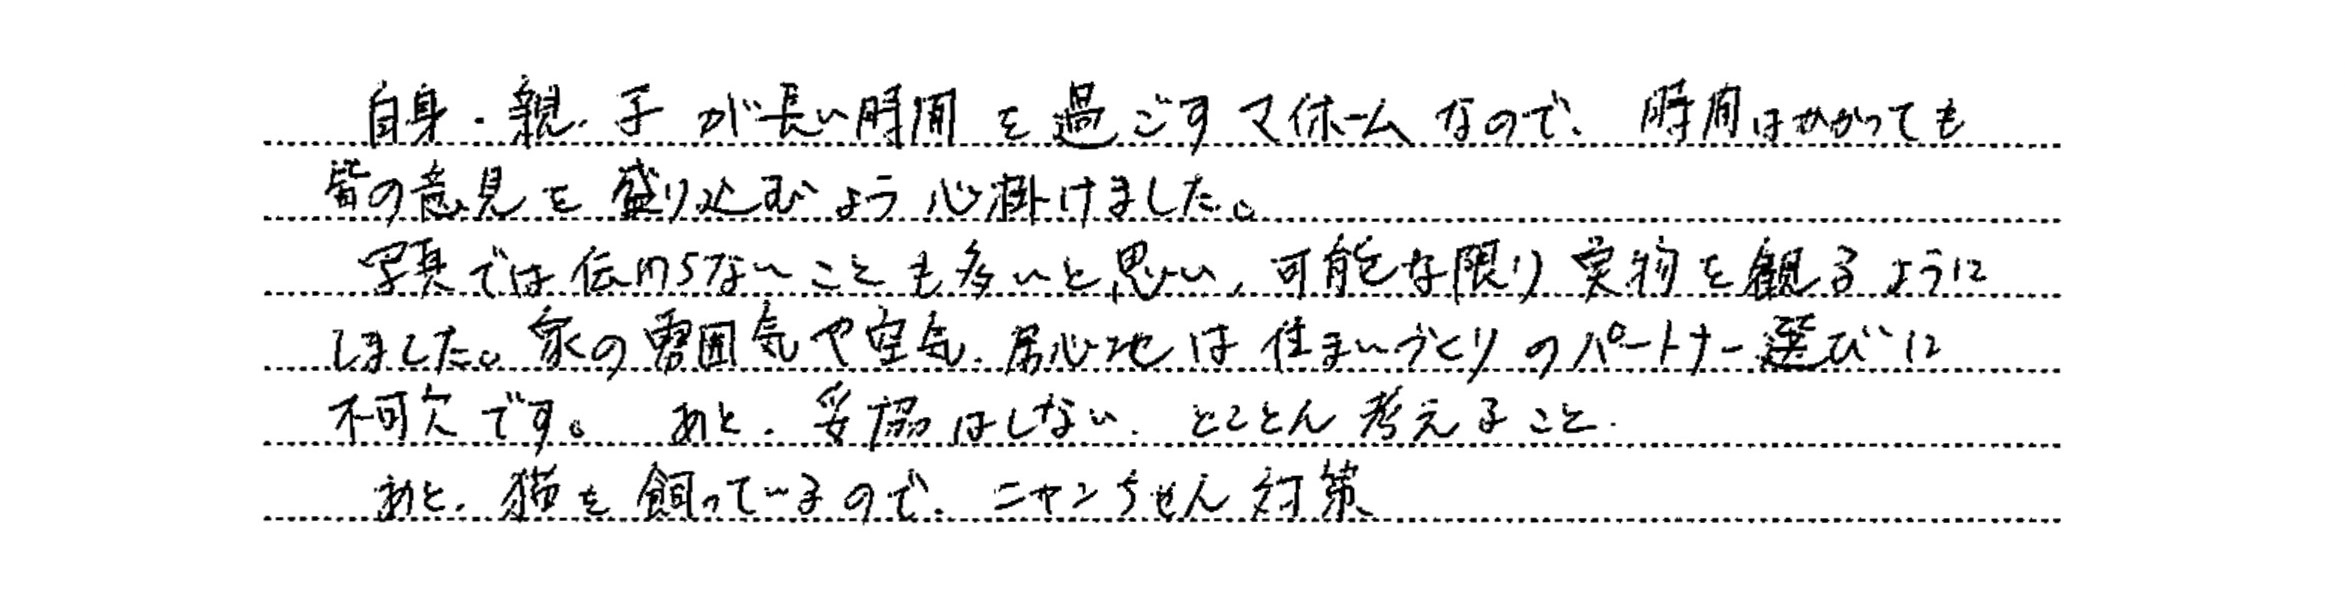 自身・親・子が長い時間を過ごすマイホームなので、時間はかかっても
皆の意見を盛り込むよう心掛けました。
写真では伝わらないことも多いと思い、可能な限り実物を観るように
しました。家の雰囲気や空気、居心地は住まいづくりのパートナー選びに
不可欠です。あと、妥協はしない、とことん考えること。
あと、猫を飼っているので、ニャンちゃん対策